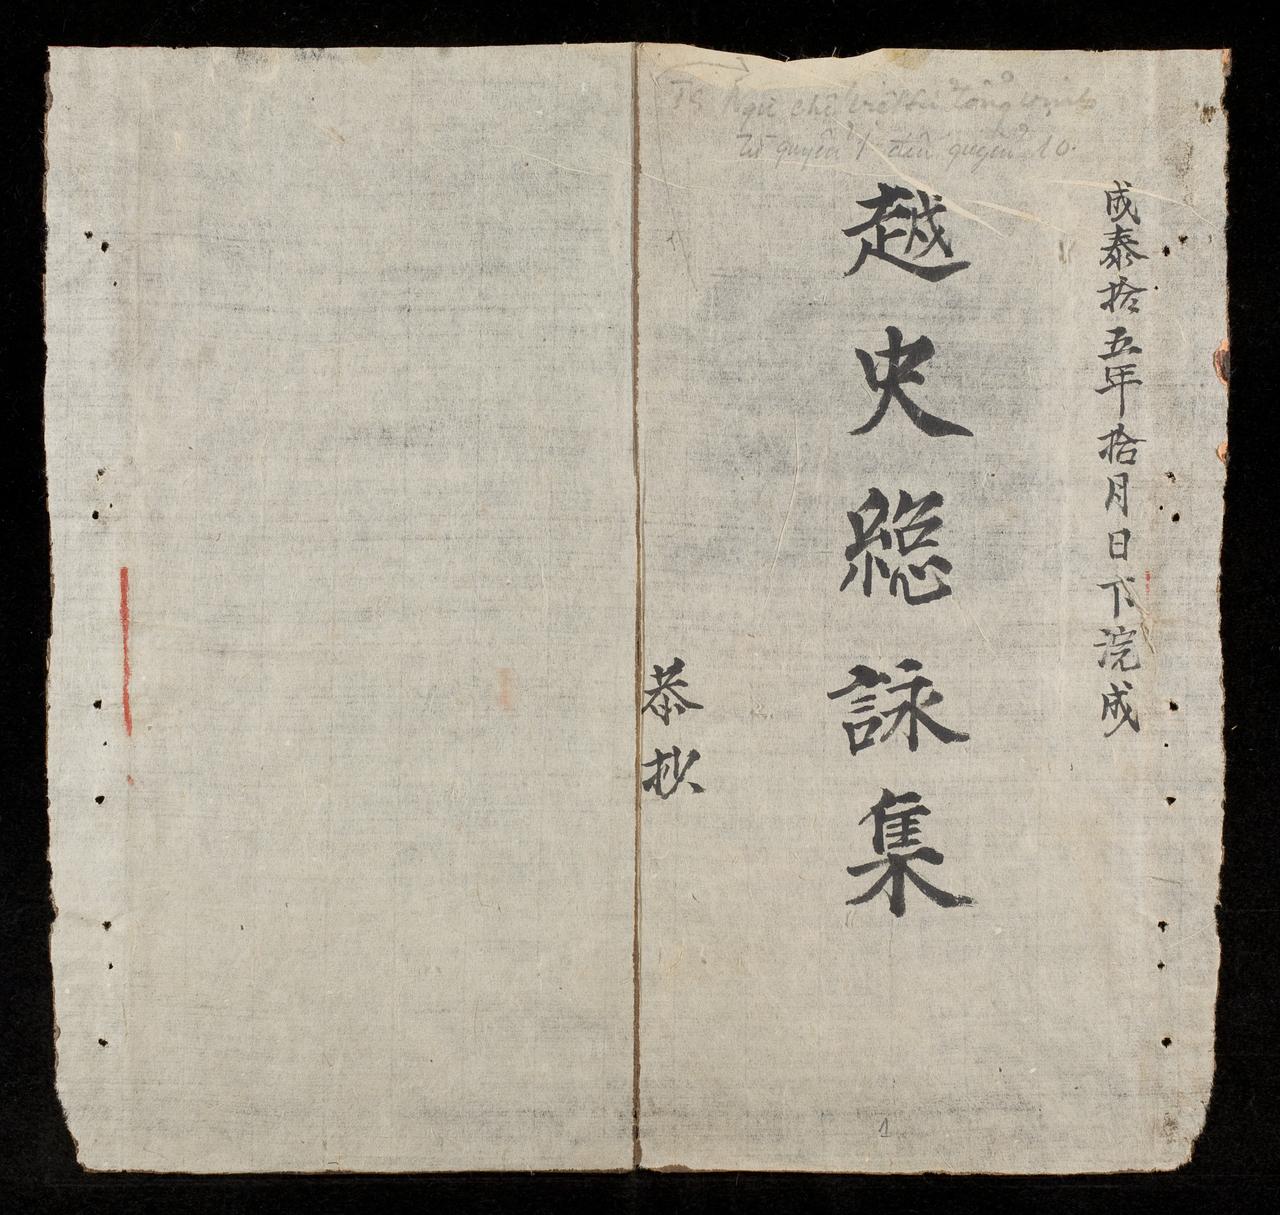 Ngự chế Việt sử tổng vịnh
từ quyển 1 đến quyển 10.
成泰拾五年拾月日下浣成
越史總詠集
恭抄
1